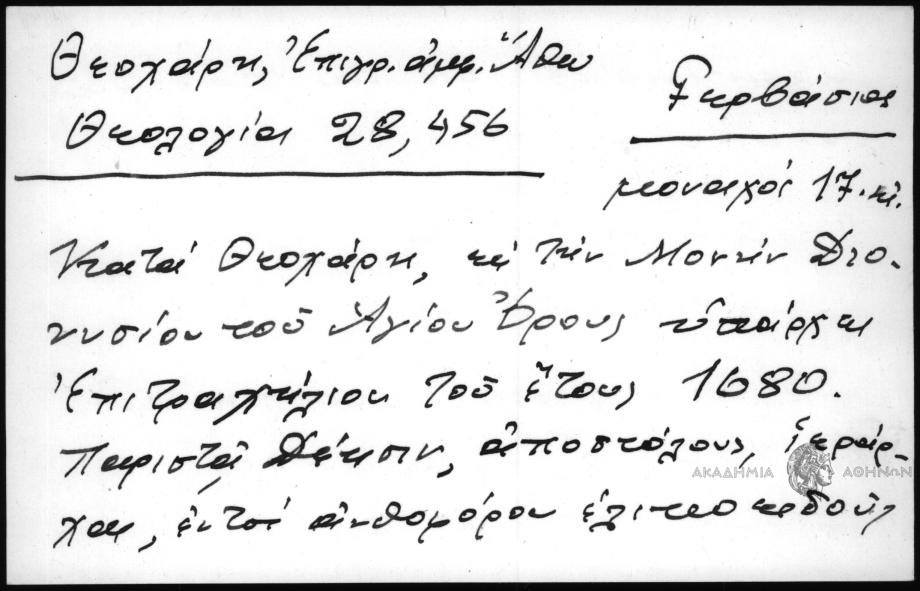 Θεοχάρη, Ἐπιγρ. ἀμφ. Ἄθω
Θεολογία 28,456
Γερβάσιος
μοναχός 17. αἰ.
Κατά Θεοχάρη, εἰς τήν Μονήν Διο-
νυσίου τοῦ Ἁγίου Ὄρους ὑπάρχει
Ἐπιτραχήλιον τοῦ ἔτους 1680.
Παριστᾶ Δέησιν, ἀποστόλους, ἱεράρ-
χας, ἐντός ἀνθοφόρου
ΑΚΑΔΗΜΙΑ ΑΘΗΝΩΝ